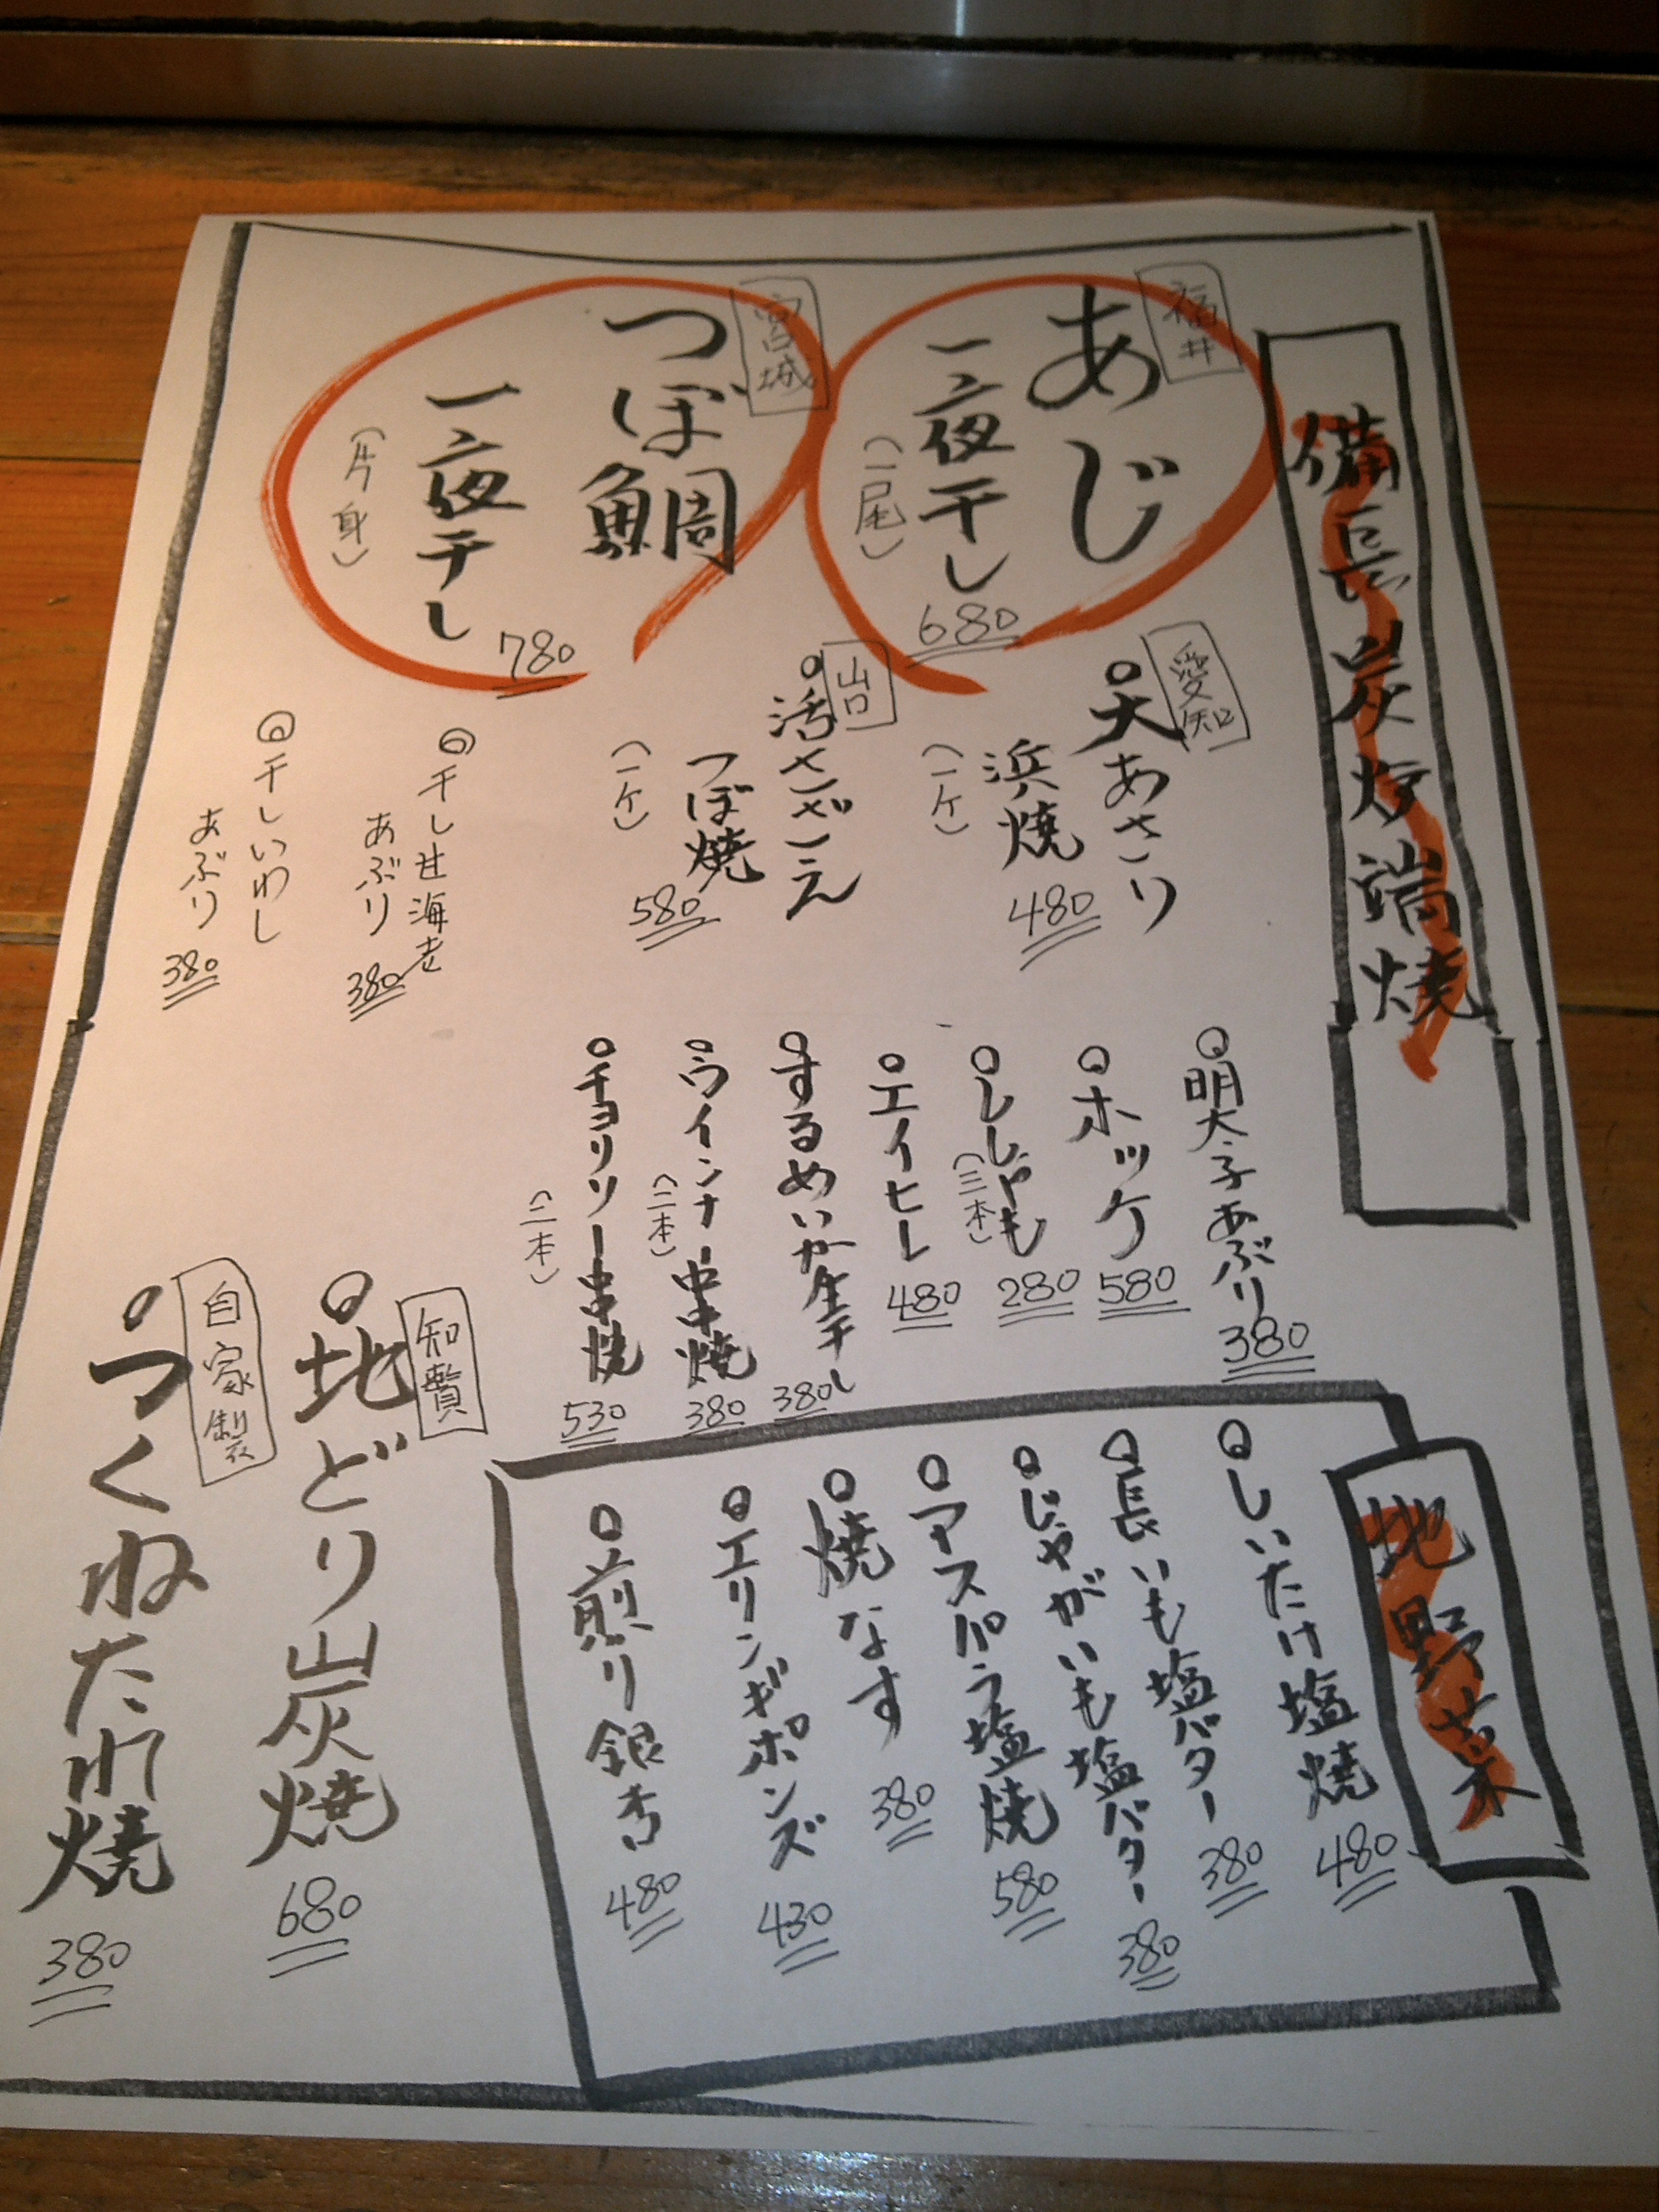 備長炭炉端焼
福井
あじ
一夜干し
(一尾)
680
宮城
つぼ鯛
一夜干し
(片身)
780
愛知
大あさり
浜焼
(一ケ)
480
山口
活さざえ
つぼ焼
(一ケ)
580
干し甘海老
あぶり
380
干しいわし
あぶり
380
明太子あぶり
380
ホッケ
580
ししゃも
(三本)
280
エイヒレ
480
するめいか生干し
380
ウインナー串焼
(二本)
380
チョリソー串焼
(二本)
530
地野菜
しいたけ塩焼
480
長いも塩バター
380
じゃがいも塩バター
380
アスパラ塩焼
580
焼なす
380
エリンギポンズ
430
煎り銀杏
480
知賛
地どり炭焼
680
自家製
つくねたれ焼
380